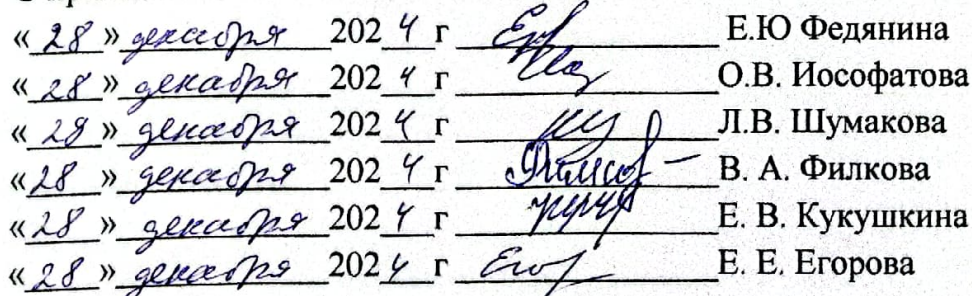 «28» декабря 2024 г Е.Ю Федянина
«28» декабря 2024 г О.В. Иософатова
«28» декабря 2024 г Л.В. Шумакова
«28» декабря 2024 г В. А. Филкова
«28» декабря 2024 г Е. В. Кукушкина
«28» декабря 2024 г Е. Е. Егорова